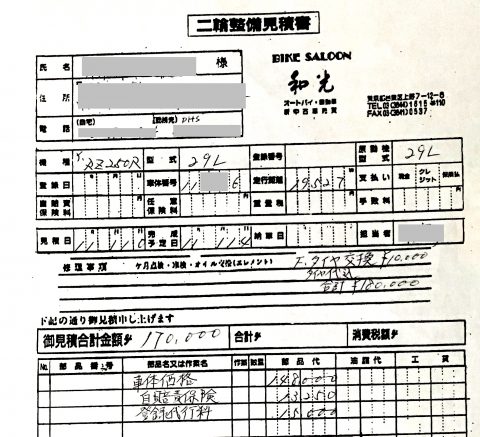 二輪整備見積書
BIKE SALOON
和光
オートバイ・自動車
新中古車売買
東京都台東区上野7-12-8
TEL 03(3841)1515
FAX 03(3841)0537
氏名 様
住所
電話 (自宅) (勤務先) PHS
機種 Y. RZ250R 型式 29L 登録番号 原動機型式 29L
登録日 年 月 日 車体番号 走行距離 19527 支払い 現金 クレジット
自賠責保険料 任意保険料 重量税 手数料
見積日 完成予定日 11 11 納車日 担当者
修理事項 ケ月点検・車検・オイル交換(エレメント) F.タイヤ交換 ¥10,000
タイヤ代込
合計 ¥180,000
下記の通り御見積申し上げます
御見積合計金額 170,000 合計 消費税額
No. 部品番号 部品名又は作業名 作業 数量 部品代 油脂代 工賃
車体価格 148000
自賠責保険 13250
登録代行料 15000